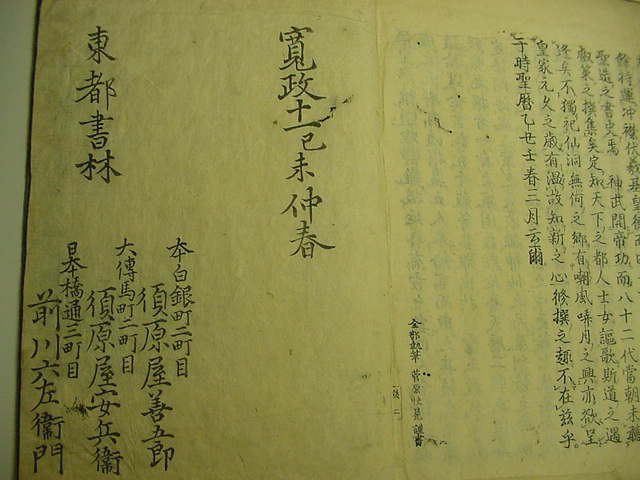 特運冲襟伏羲基皇德而四
聖造之書史焉 神武開帝功而八十二代當朝未聽
叡策之撰集矣定知天下之都人士女謳歌斯道之遇
逢矣不獨記仙洞無何之鄉有嘲風哢月之興亦欲呈
皇家元久之歲有温故知新之心修撰之趣不在茲乎
于時聖曆乙丑王春三月云爾
菅原
寬政十一己未仲春
東都書林
本白銀町二町目
須原屋善五郎
大傳馬町二町目
須原屋安兵衞
日本橋通三町目
前川六左衞門